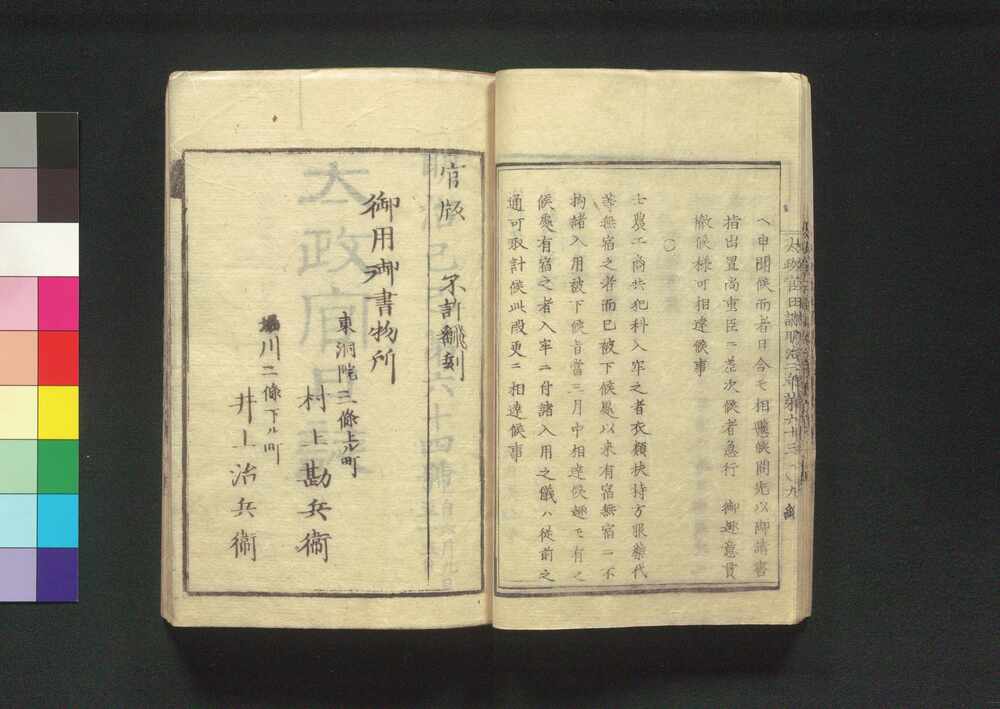 ヘ申聞候而者日今モ相聽候間先以御請書
指出置尚重臣二差次候者急行 御趣意貫
徹候様可相達候事
〇
士農工商共犯科入牢之者衣類扶持方服藥代
等無宿之者而已被下候處以来有宿無宿一不
拘諸入用被下候旨當三月中相達候趣モ有之
候處有宿之者入牢二付諸入用之儀ハ從前之
通可取計候此段更二相達候事
官版 不許翻刻
御用御書物所
東洞院三條上ル町
村上勘兵衞
堀川二條下ル町
井上治兵衞